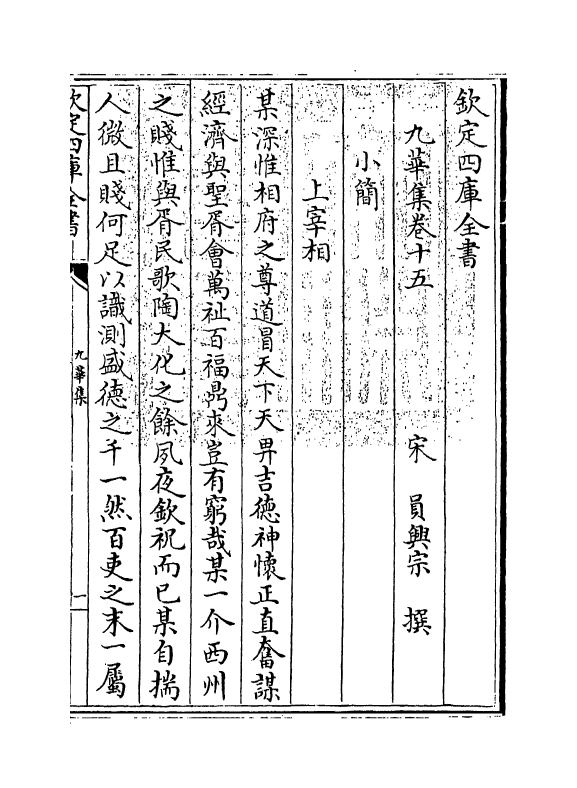 欽定四庫全書
九華集卷十五
宋 員興宗 撰
小簡
上宰相
某深惟相府之尊道冒天下天畀吉德神懷正直奮謀
經濟與聖胥會萬祉百福鼎來豈有窮哉某一介西州
之賤惟與胥民歌陶大化之餘夙夜欽祝而已某自揣
人微且賤何足以識測盛德之千一然百吏之末一屬
欽定四庫全書
九華集
一